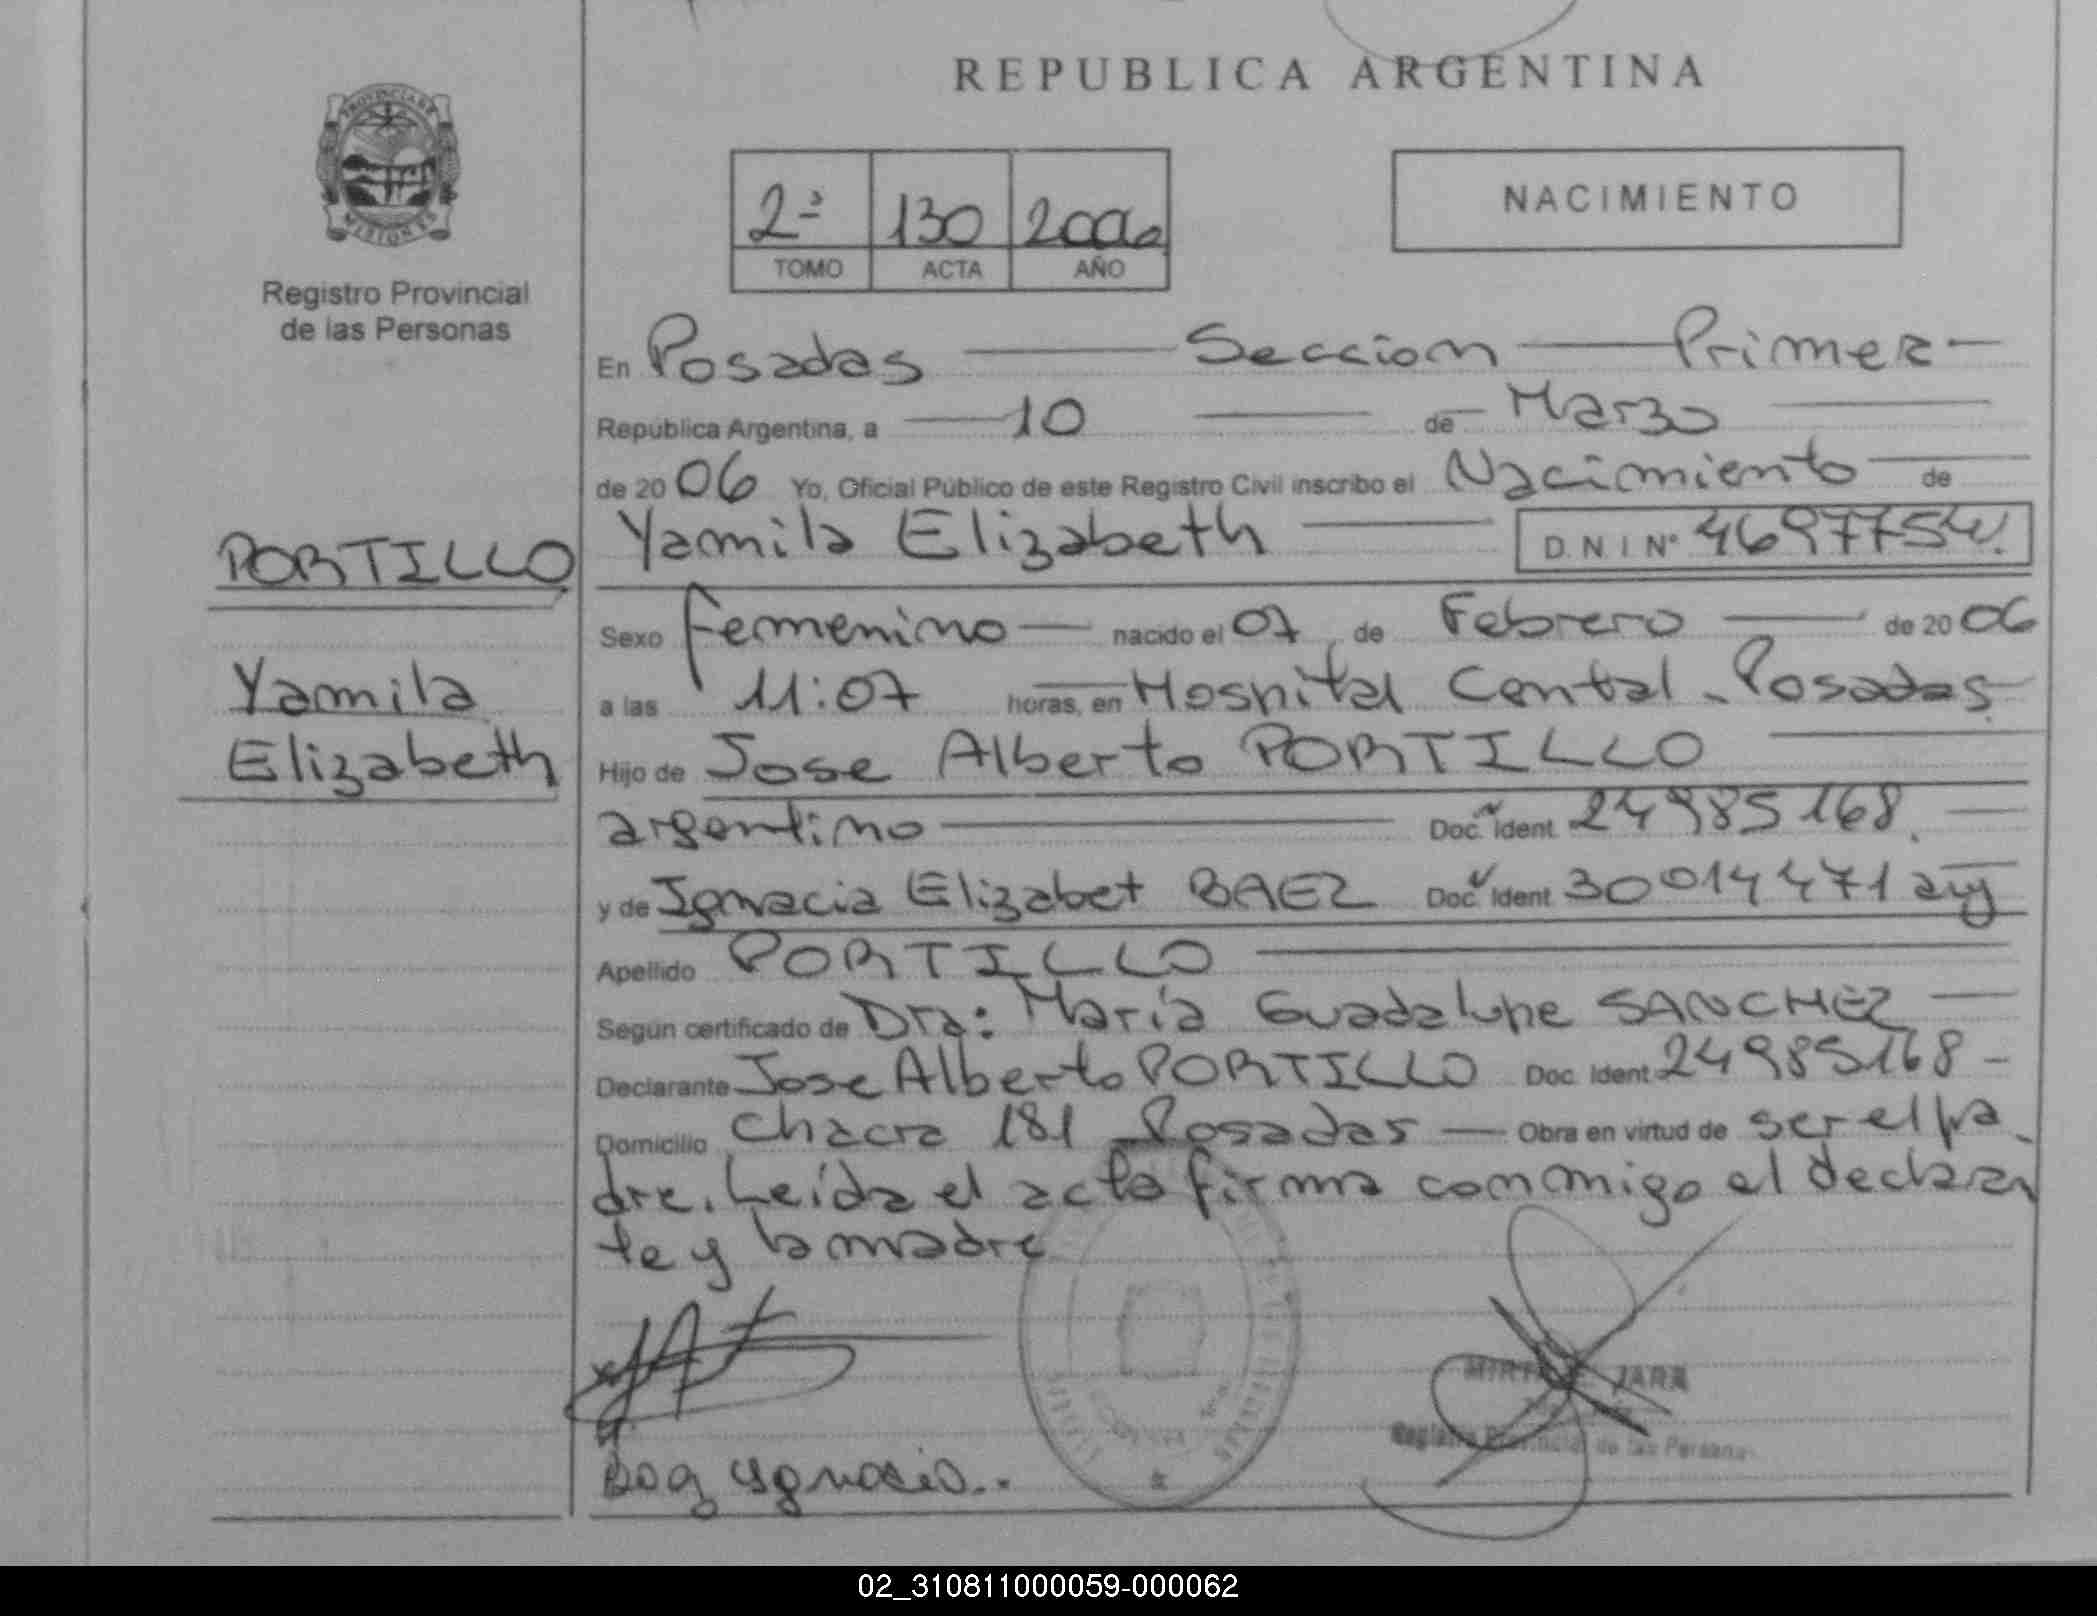 PROVINCIA DE
MISIONES
Registro Provincial
de las Personas
PORTILLO
Yamila
Elizabeth
REPUBLICA ARGENTINA
2ª 130 2006
TOMO ACTA AÑO
NACIMIENTO
En Posadas Seccion Primera
República Argentina, a 10 de Marzo
de 2006 Yo, Oficial Público de este Registro Civil inscribo el Nacimiento de
Yamila Elizabeth D.N.I Nº 46977541
Sexo femenino nacido el 07 de Febrero de 2006
a las 11:07 horas, en Hospital Cental - Posadas
Hijo de Jose Alberto PORTILLO
argentino Doc. Ident. 24985168.
y de Ignacia Elizabet BAEZ Doc. Ident. 30014471 arg
Apellido PORTILLO
Según certificado de Dra: María Guadalupe SANCHEZ
Declarante Jose Alberto PORTILLO Doc. Ident. 24985168 -
Domicilio Chacra 181 Posadas Obra en virtud de ser el pa
dre. Leída el acta firma conmigo el declaran
te y la madre
JARA
Registro Provincial de las Personas
Baez Ygnacia..
02_310811000059-000062